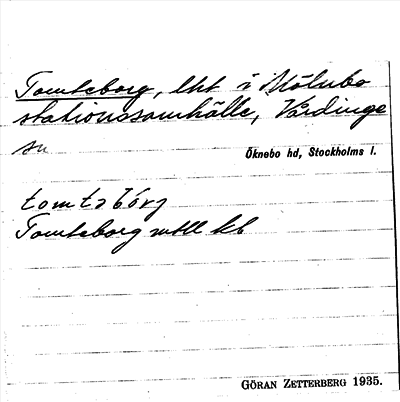 Tomteborg, lht i Mölnbo
stationssamhälle, Vårdinge
sn Öknebo hd, Stockholms l.
Tomteborg mtll kb
GÖRAN ZETTERBERG 1935.